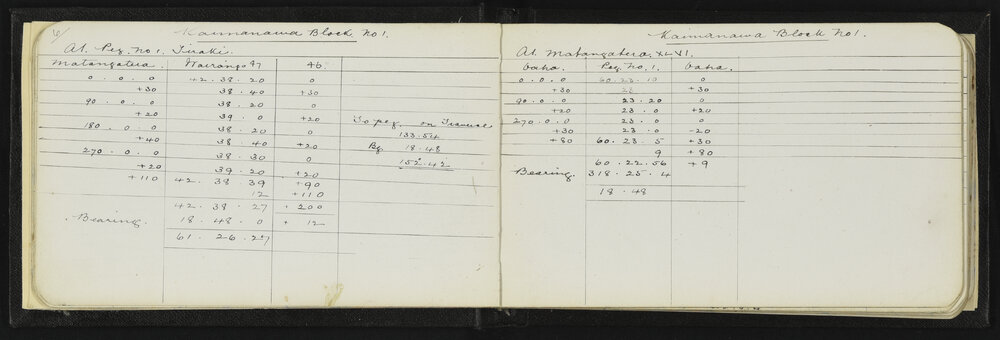 6/
Kaimanawa Block No 1.
At Peg No 1. Tiraki.
Matangatera. Wairango 47 46
0. 0. 0 42. 38. 20 0
+30 38. 40 +30
90. 0. 0 38. 20 0
+20 39. 0 +20
180. 0. 0 38. 20 0
+40 38. 40 +20
270. 0. 0 38. 30 0
+20 39. 20 +20
+110 42. 38. 39 +90
12 +110
42. 38. 27 + 200
Bearing. 18. 48. 0 + 12
61. 26. 27
To peg on Traverse
133.54
Bg. 18.48
152.42
Kaimanawa Block No 1.
At Matangatera. XLVI.
Oaha. Peg No. 1. Oaha.
0. 0. 0 60. 23. 10 0
+30 23 +30
90. 0. 0 23. 20 0
+20 23. 0 +20
270. 0. 0 23. 0 0
+30 23. 0 -20
+80 60. 23. 5 +30
9 +80
60. 22. 56 +9
Bearing. 318. 25. 4
18. 48